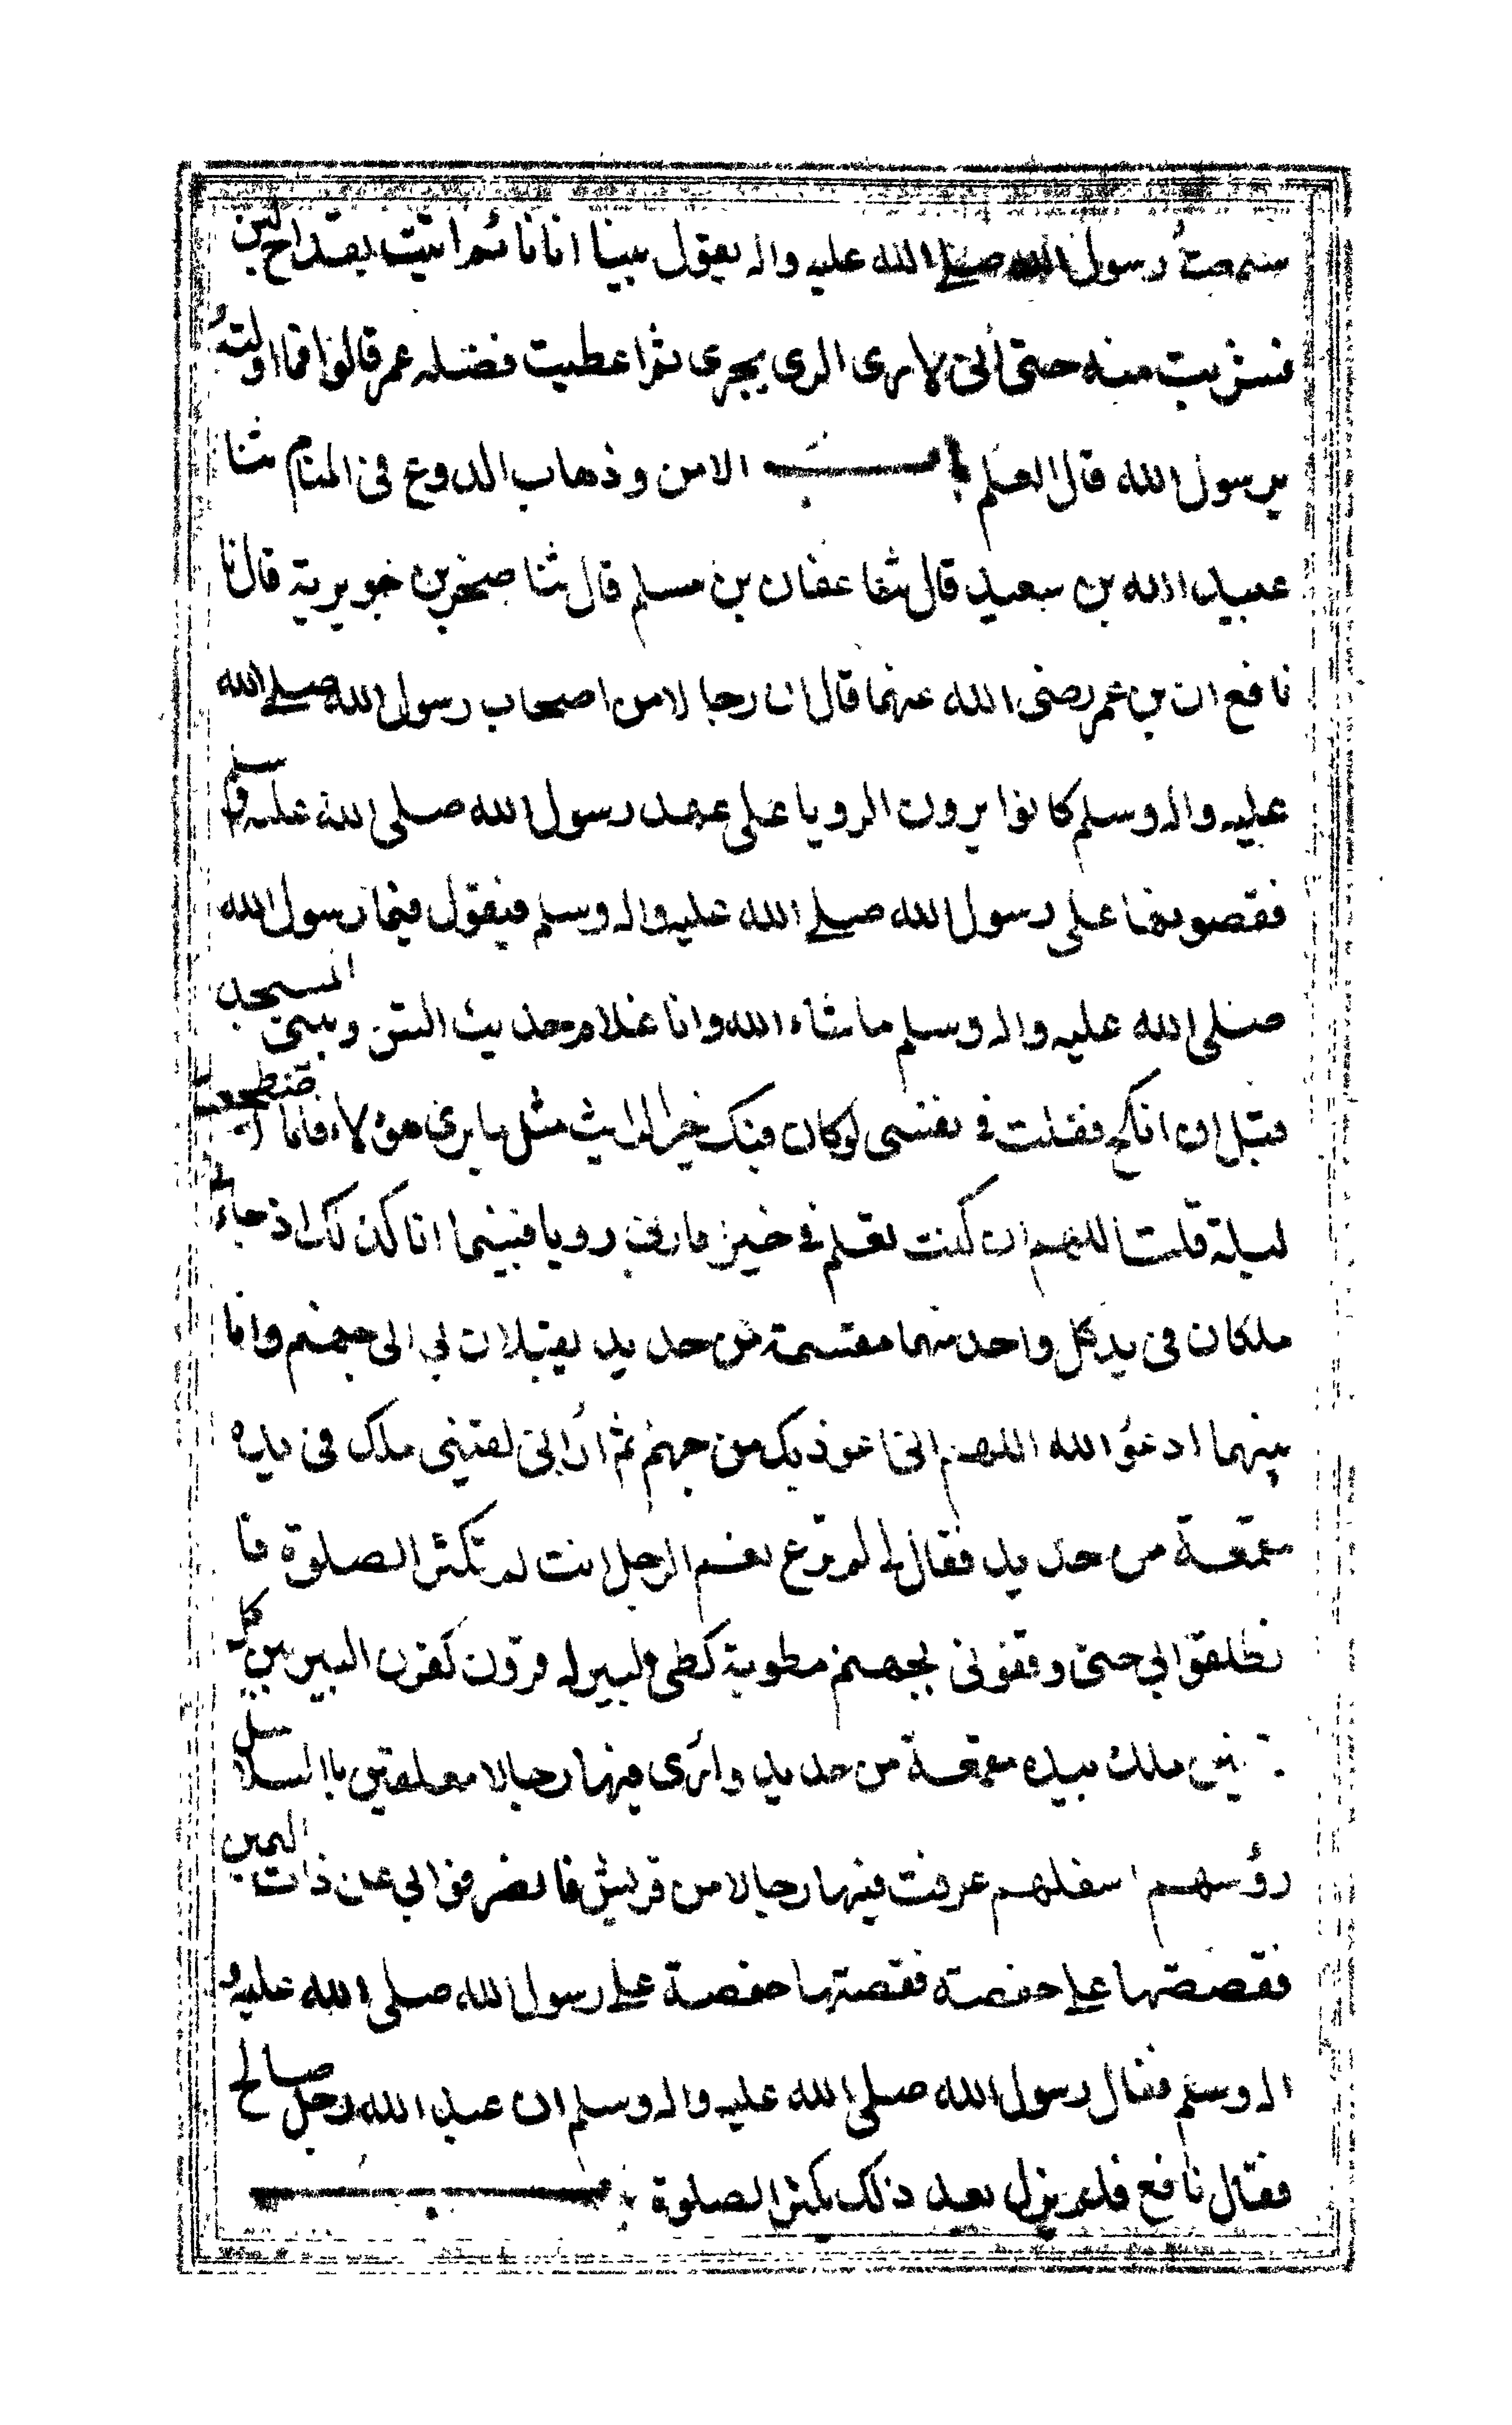 سمعت رسول الله صلے الله عليه واله يقول بينا انا نائم اتيت بقداح لبن
فشربت منه حتى أنى لارى الرى يجرى ثم اعطيت فضله عمر قالوا فما اولتهُ
يرسول الله قال العلم باب الامن وذهاب الروع فى المنام ثنا
عبيد الله بن سعيد قال ثنا عفان بن مسلم قال ثنا صخر بن جويرية قال نا
نافع ان بن عمر رضى الله عنهما قال ان رجالا من اصحاب رسول الله صلے الله
عليه واله وسلم كانوا يرون الرويا على عهد رسول الله صلى الله عليه وسلم
فقصونها على رسول الله صلے الله عليه واله وسلم فيقول فيها رسول الله
صلى الله عليه واله وسلم ما شاء الله وانا غلام حديث السن وبيتى المسجد
قبل ان انكح فقلت فى نفسى لوكان فيك خير الرايث مثل ما يرى هؤلاء فلما
ليلة قلت اللهم ان كنت تعلم فى خير فارنى رويا فبينما انا كذلك اذ جاءنى
ملكان فى يد كل واحد منهما مقسمة من حديد يقبلان بى الى جهنم وانا
بينهما ادعوُ الله اللهم انى اعوذ بك من جهنم ثم اُرانى لقينى ملك فى يده
مقمعة من حديد فقال لى لم ترع نعم الرجل انت لم تكثر الصلوة فا
نطلقوا بى حتى وقفونى بجهنم مطوية كطى البير له قرون كقرن البير بين كل
نين ملك بيده مقمعة من حديد وارى فيها رجالا معلقين بالسلاسل
رؤسهم اسفلهم عرفت فيها رجالا من قريش فانصرفوا بى عن ذات اليمين
فقصصتها على حفصة فقصتها حفصة على رسول الله صلى الله عليه و
اله وسلم فقال رسول الله صلى الله عليه واله وسلم ان عبد الله رجل صالح
فقال نافع فلم يزل بعد ذلك يكثر الصلوة